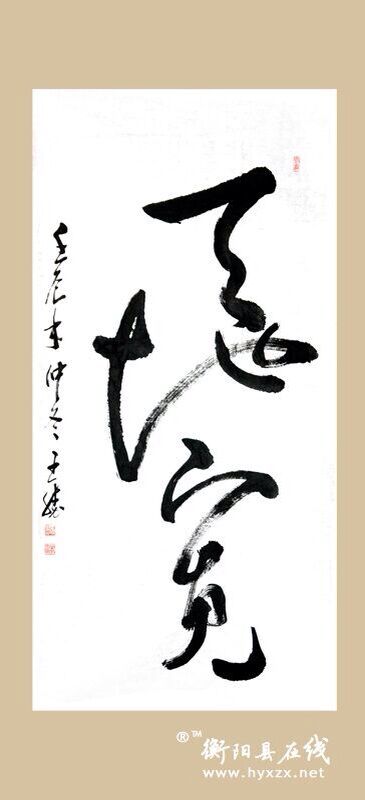 天地宽
壬辰年仲冬
®™ 衡阳县在线
www.hyxzx.net